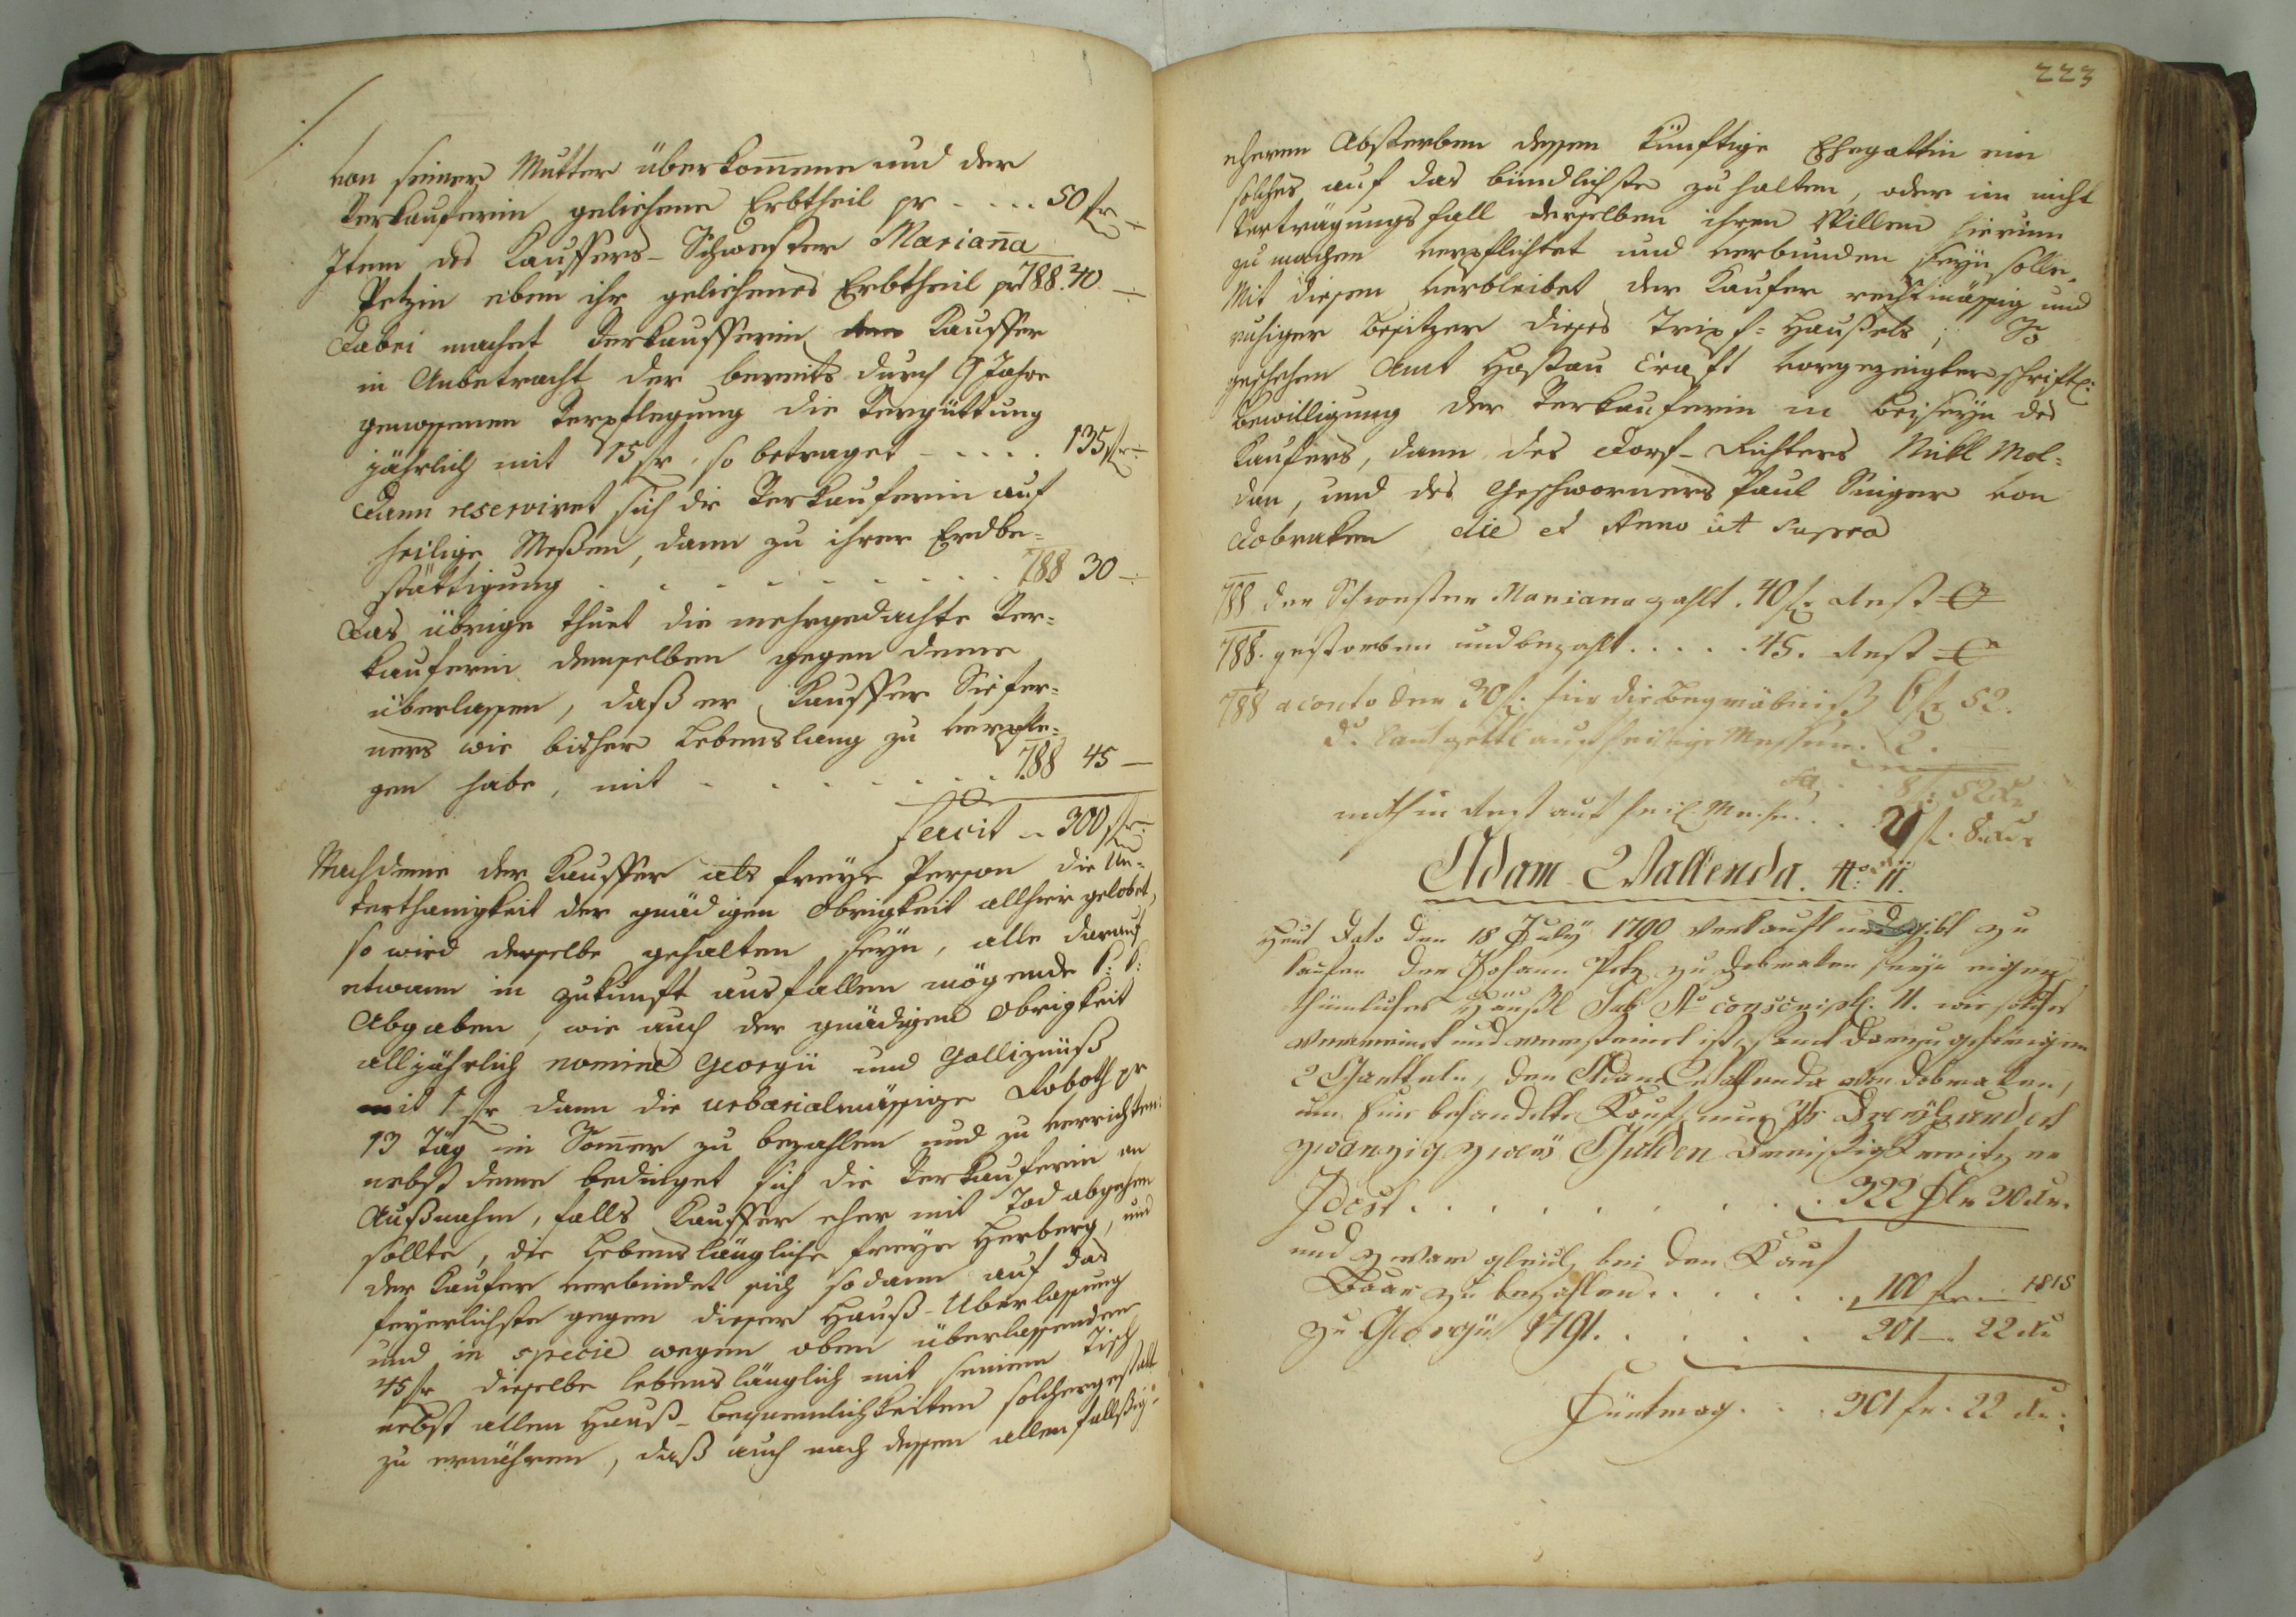 von seiner Mutter überkom̅ene und der
Verkauferin geliehene Erbtheil pr - - - - 50 fr -:
Item des Kauffers-Schwester Marian̅a
Petzin eben ihr geliehenes Erbtheil pr 788. 40 -:
Dabei machet Verkaufferin dem Kauffer
in Anbetracht der bereits durch 9 Jahre
genossenen Verpflegung die Vergüttung
jährlich mit 15 fr, so betraget - - - - 135 fr -:
Dann reserviret sich die Verkauferin auf
heilige Meßen, dann zu ihrer Erdbe=
stättigung - - - - - - - - 788 30 -:
Das übrige thuet die mehrgedachte Ver=
kauferin demselben gegen deme
überlassen, daß er Kauffer Sie fer=
ners wie bisher Lebenslang zu verpfle=
gen habe, mit - - - - - - 788 45 —
facit - 300 fr
Nachdeme der Kauffer als freye Person die Un=
terthanigkeit der gnädigen Obrigkeit allhier gelobet,
so wird derselbe gehalten seyn, alle darauf
etwann in Zukunft ausfallen mögende k: k:
Abgaben, wie auch der gnädigen Obrigkeit
alljährlich nomine Georgii und Gallizinß
mit 1 fr dann die urbarialmässige Roboth pr
13 Täg in Som̅er zu bezahlen und zu verrichten.
nebst deme bedinget sich die Verkauferin an
Außnahm, falls Kauffer eher mit Tod abgehen
sollte, die Lebenslängliche freye Herberg, und
der Kaufer verbindet sich sodann auf das
feyerlichste gegen dieser Hauß-Uberlassung
und in specie wegen oben überlassenden
45 fr dieselbe lebenslänglich mit seinem Tisch
nebst allen Hauß-bequemlichkeiten solchergestalt
zu ernähren, daß auch nach dessen allenfallßig=
223
eheren Absterben dessen künftige Ehegattin ein
solches auf das bündlichste zu halten, oder im nicht
Vertragungsfall derselben ihren Willen hierinn
zu machen verpflichtet und verbunden seyn solle.
Mit diesen verbleibet der Kaufer rechtmässig und
ruhiger Besitzer dieses Tripf=Haußels; So
geschehen Amt Hostau Craft vorgezeigter schriftl:
Bewilligung der Verkauferin in beiseyn des
Kaufers, dann des Dorf-Richters Nickl Mol=
dan, und des Geschwornens Paul Singer von
Dobraken die et Anno ut supra
788 der Schwester Mariana zahlt. 40 fr Rest
788. gestorben und bezahlt . . . . . 45. Rest
788 a conto der 30 fr: für die Begräbniß 6 fr 52.
dto laut zettl auf heilige Messen. 2.
8 fr: 52 xr
mithin Rest auf heil. Messen . . . 21 fr. 8 xr
Adam Wallenda. No: 11.
Heut Dato den 18 July 1790 verkauft und gibt zu
kaufen der Johann Petz zu Dobraken sein eigen
thümliches Häußl Sub No conscript. 11. wie solches
verreinet und versteinet ist, samt darzu gehörigen
2 Gartteln, den Adam Wallenda von Dobraken,
um eine behandelte Kaufsum̅ pr Dreyhundert
zwanzig zwey Gulden dreissig Kreitzer
. . . . . . . . 322 fl 30 xr.
und zwar gleich bei den Kauf
Baar zu bezahlen . . . . . . 100 fr - 1818
zu Georgii 1791. . . . . . 201 - 22 xr
. . . 301 fr. 22 xr: